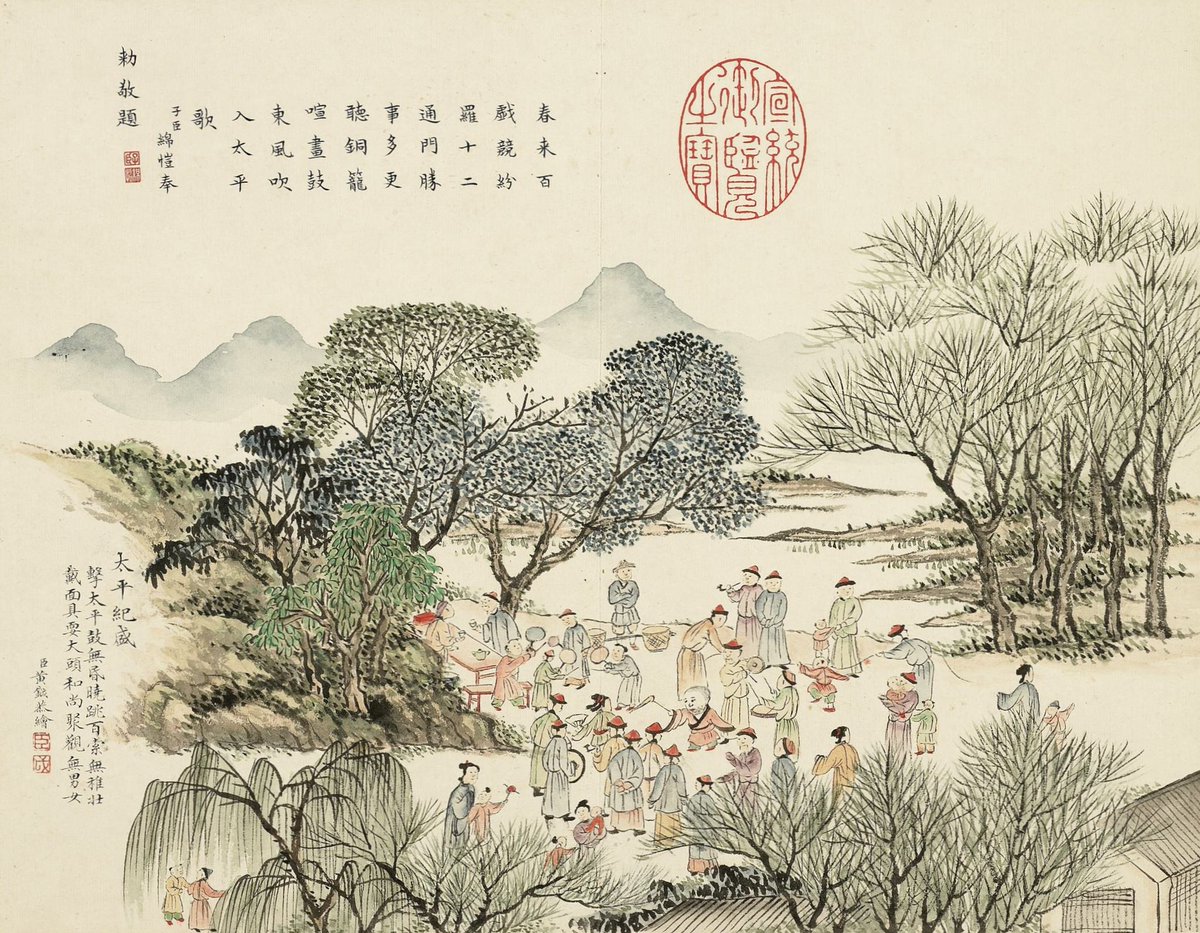 宣統
御覽
之寶
春來百
戲競紛
羅十二
通門勝
事多更
聽銅籠
喧畫鼓
東風吹
入太平
歌
子臣綿愷奉
勅敬題
太平紀盛
擊太平鼓無昏曉跳百索無稚壯
戴面具耍大頭和尚聚觀無男女
臣黃鉞恭繪
臣